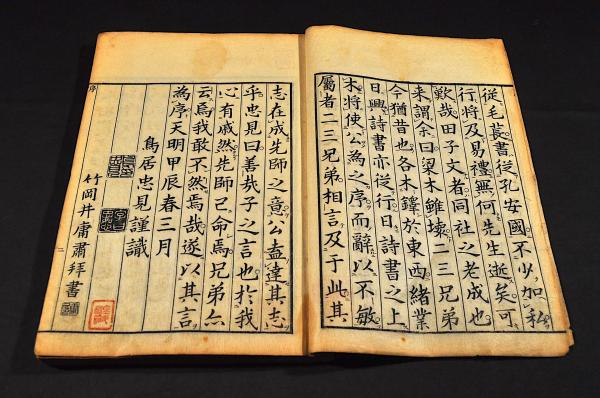 從毛萇書從孔安國不必加私
行將及易禮無何先生逝矣可
歎哉田子文者同社之老成也
来謂余曰梁木雖壞二三兄弟
今猶昔也各木鐸於東西緒業
日興詩書亦從行曰詩書之上
木將使公為之序而辭以不敏
屬者二三兄弟相言及于此其
志在成先師之意公盍達其志
乎忠見曰善哉子之言也於我
心有戚然先師已命焉兄弟亦
云焉我敢不然焉哉遂以其言
為序天明甲辰春三月
鳥居忠見謹識
竹岡井庸肅拜書